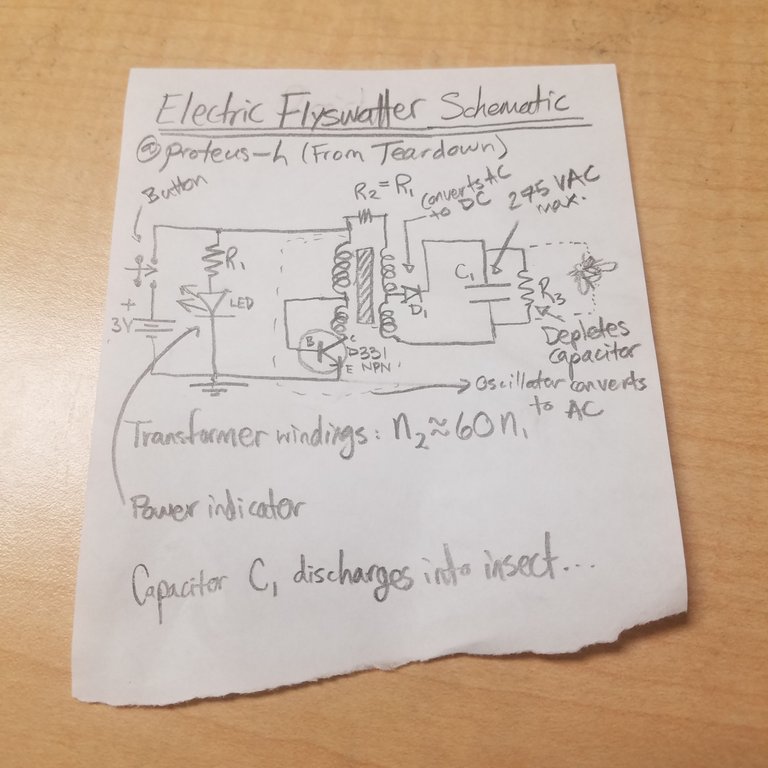 Electric Flyswatter Schematic
@proteus-h (From Teardown)
Button
R2=R1
Converts AC
to DC
275 VAC
max.
R1
LED
+
3V
B
C
D331
E NPN
D1
C1
R3
Depletes
Capacitor
Oscillator converts
to AC
Transformer windings: n2≈60n1
Power indicator
Capacitor C1 discharges into insect...